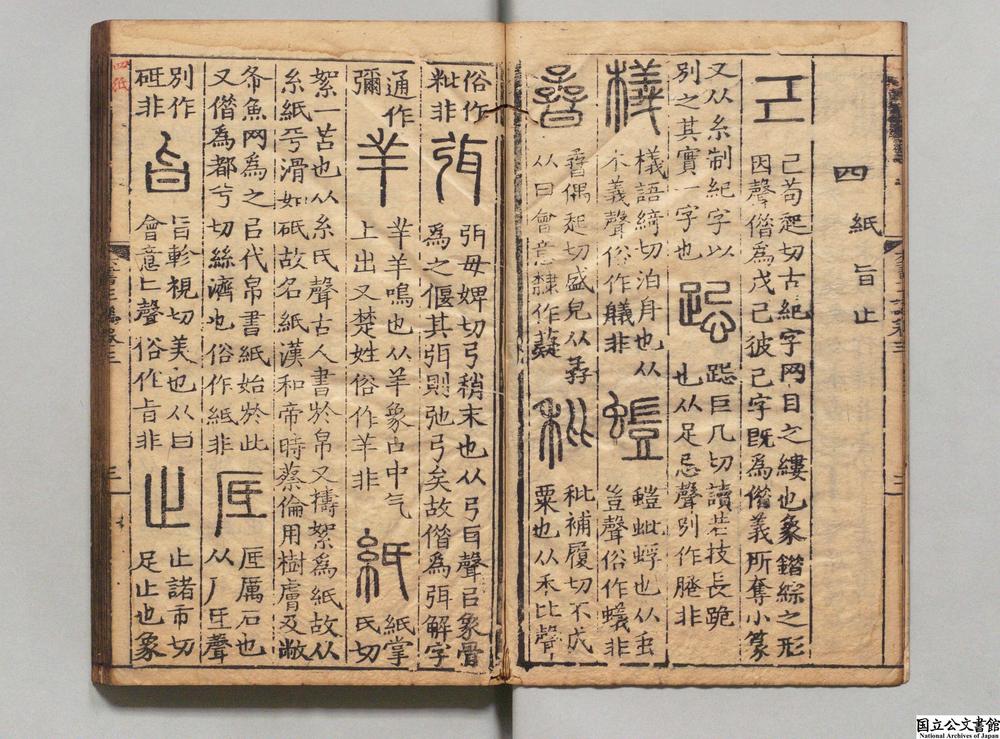 四 紙 旨 止
己
己苟起切古紀字网目之縷也象鍇綜之形
因聲借爲戊己彼己字既爲借義所奪小篆
又从糸制紀字以
別之其實一字也
跽
跽巨几切讀若技長跪
也从足忌聲別作非
檥
檥語綺切泊身也从
木義聲俗作艤非
螘
螘蚍蜉也从虫
豈聲俗作蟻非
孴
孴偶起切盛皃从孨
从曰會意隸作薿
秕
秕補履切不成
粟也从禾比聲
俗作
粃非
弭
弭母婢切弓稍末也从弓耳聲㠯象骨
爲之偃其弭則弛弓矣故借爲弭解字
通作
彌
羋
羋羊鳴也从羊象口中气
上出又楚姓俗作芈非
紙
紙掌
氏切
絮一苫也从糸氏聲古人書於帛又擣絮爲紙故从
糸紙乎滑如砥故名紙漢和帝時蔡倫用樹膚及敝
布魚网爲之㠯代帛書紙始於此
又借爲都兮切絲濟也俗作紙非
厎
厎厲石也
从厂氐聲
別作
砥非
旨
旨軫視切美也从曰
會意匕聲俗作㫖非
止
止諸市切
足止也象
四紙
国立公文書館
National Archives of Japan